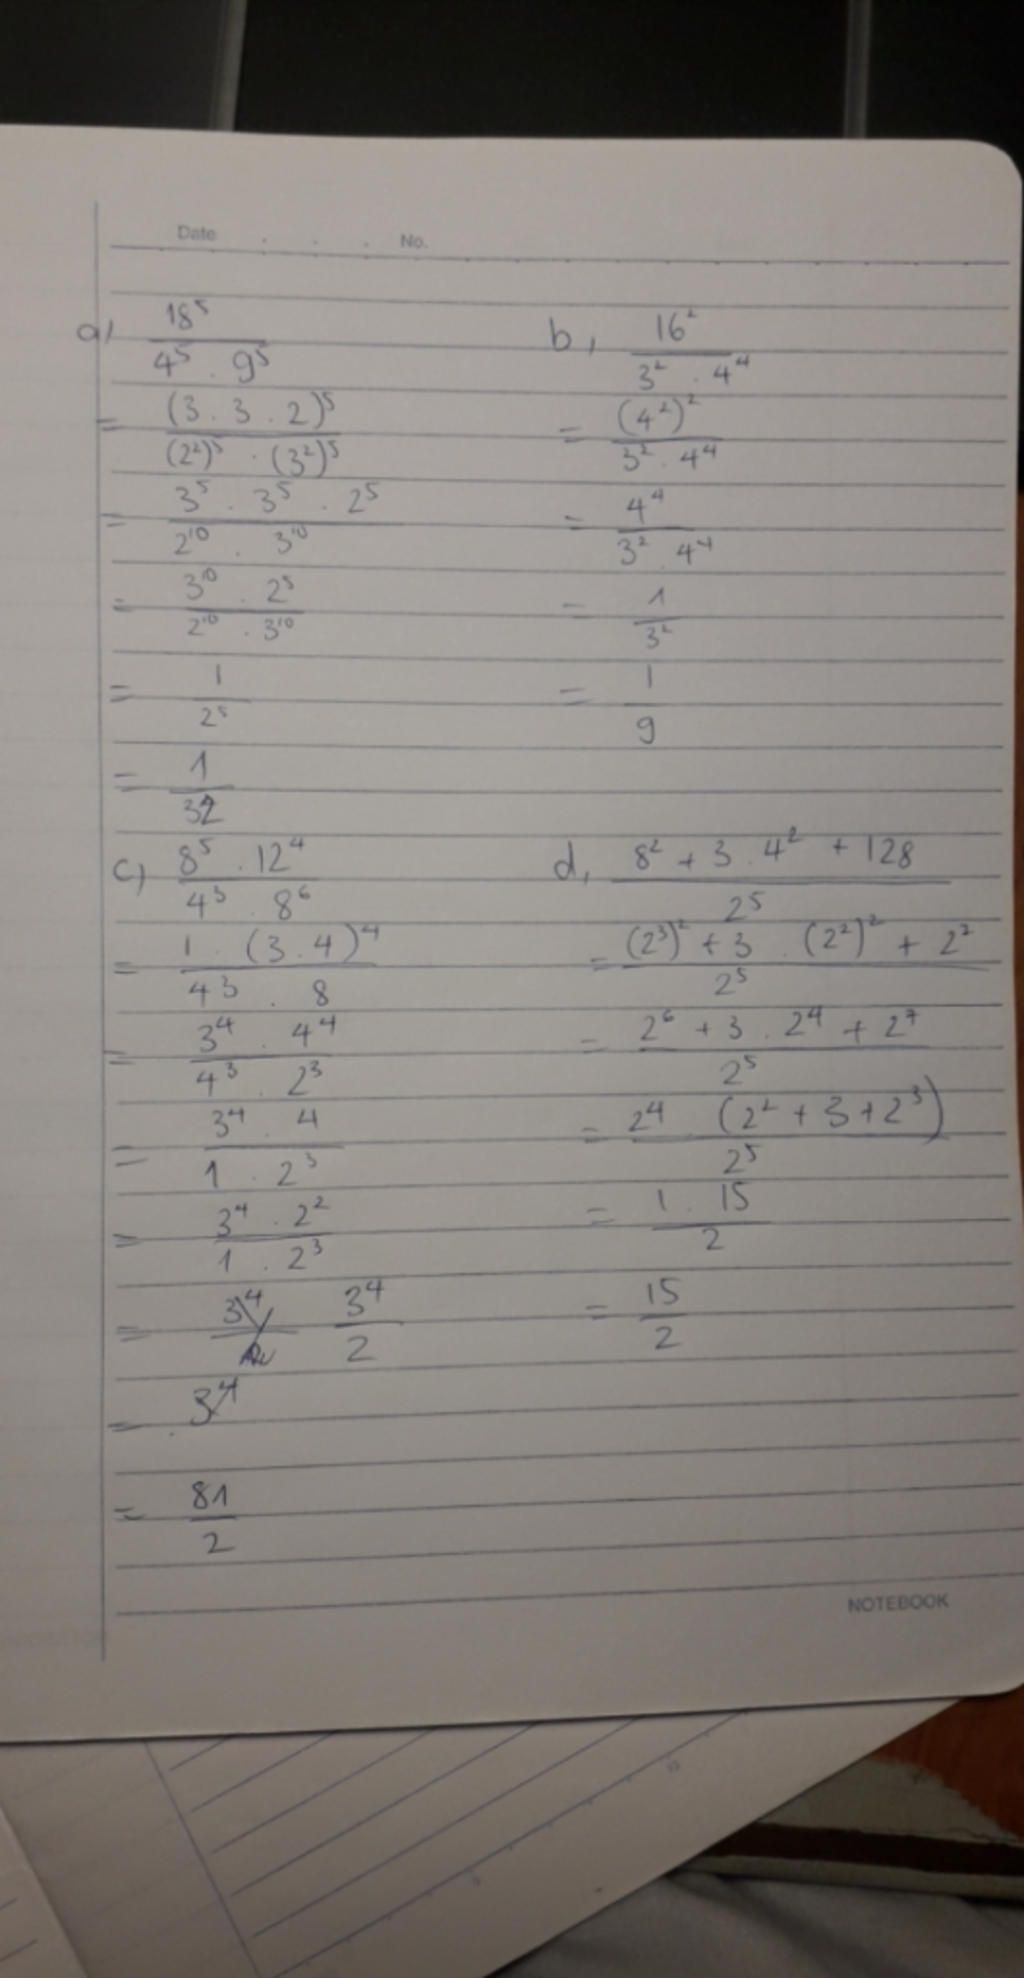 Date . . . No.
a, 18⁵ / 4⁵ . 9⁵
= (3 . 3 . 2)⁵ / (2²)⁵ . (3²)⁵
= 3⁵ . 3⁵ . 2⁵ / 2¹⁰ . 3¹⁰
= 3¹⁰ . 2⁵ / 2¹⁰ . 3¹⁰
= 1 / 2⁵
= 1 / 32
b, 16² / 3² . 4⁴
= (4²)² / 3² . 4⁴
= 4⁴ / 3² . 4⁴
= 1 / 3²
= 1 / 9
c, 8⁵ . 12⁴ / 4³ . 8⁶
= 1 . (3 . 4)⁴ / 4³ . 8
= 3⁴ . 4⁴ / 4³ . 2³
= 3⁴ . 4 / 1 . 2³
= 3⁴ . 2² / 1 . 2³
= 3⁴ / 3⁴ / 2
= 3⁴
= 81 / 2
d, 8² + 3 . 4² + 128 / 2⁵
= (2³)² + 3 . (2²)² + 2⁷ / 2⁵
= 2⁶ + 3 . 2⁴ + 2⁷ / 2⁵
= 2⁴ (2² + 3 + 2³) / 2⁵
= 1 . 15 / 2
= 15 / 2
NOTEBOOK